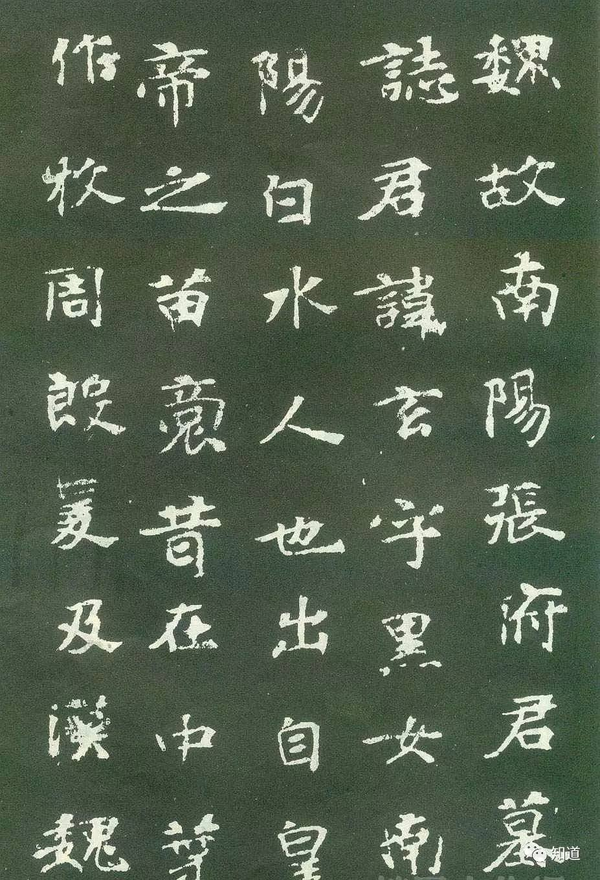 魏故南陽張府君墓
誌君諱玄字黑女南
陽白水人也出自皇
帝之苗裔昔在中葉
作牧周殷爰及漢魏
知道